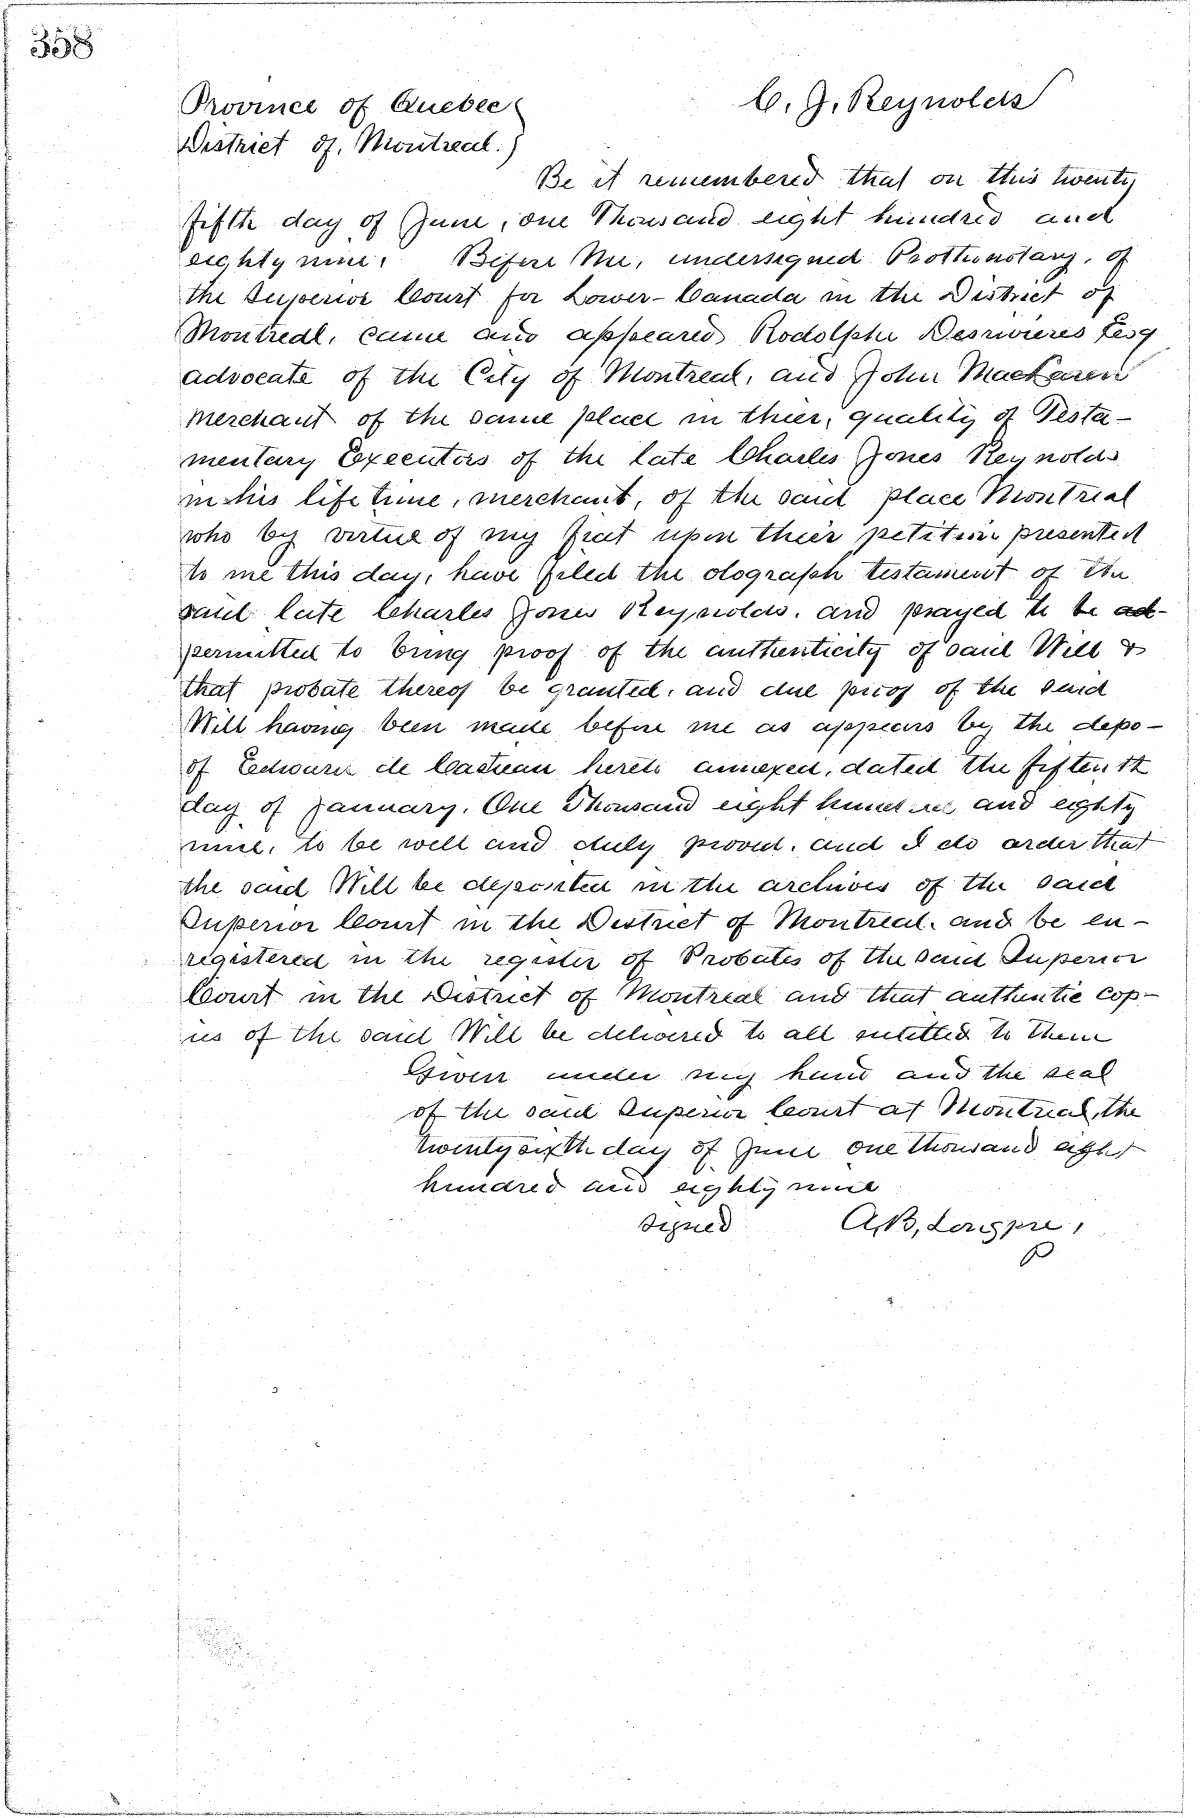 358
Province of Quebec
C. J. Reynolds
District of, Montreal.)
Be it remembered that on this twenty
fifth day of June, one Thousand eight hundred and
eighty nine. Before Me, undersigned Prothonotary, of
the Superior Court for Lower-Canada in the District of
Montreal, came and appeared Rodolphe Desrivieres Esq
advocate of the City of Montreal, and John MacLaren
Merchant of the same place in thier, quality of Testa-
mentary Executors of the late Charles Jones Reynolds
in his life time, merchant, of the said place Montreal
who by virtue of my fiat upon their petition presented
to me this day, have filed the olograph testament of the
said late Charles Jones Reynolds. and prayed to be ad-
permitted to bring proof of the authenticity of said Will &
that probate thereof be granted, and due proof of the said
Will having been made before me as appears by the depo-
of Edward de hereto annexed, dated the fiftenth
day of January. One Thousand eight hundred and eighty
nine, to be well and duly proved. and I do order that
the said Will be deposited in the archives of the said
Superior Court in the District of Montreal. and be en-
registered in the register of Probates of the said Superior
Court in the District of Montreal and that authentic cop-
ies of the said Will be delivered to all entitled to them
Given under my hand and the seal
of the said Superior Court at Montreal, the
twenty sixth day of June one thousand eight
hundred and eighty nine
signed A,B, Longpre,
P